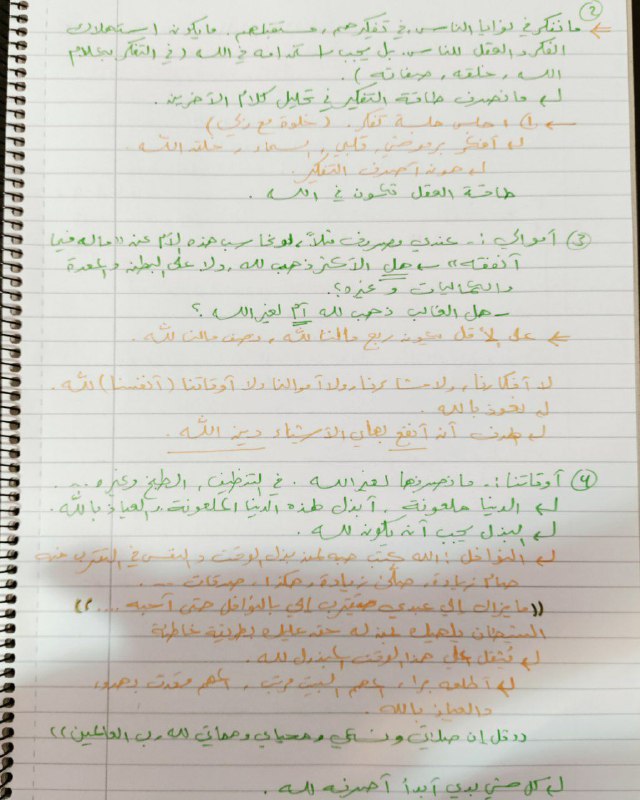 ② ما نفكر في نوايا الناس، في تفكيرهم، مستقبلهم. ما يكون استهلاك
الفكر والعقل للناس. بل يجب استخدامه في الله (في التفكر بكلام
الله، خلقه، صفاته).
ما نصرف طاقة التفكير في تحليل كلام الآخرين.
① اجلس جلسة تفكر. (خلوة مع ربي)
أفكر بروحي، قلبي، السماء، خلق الله.
أصرف التفكير.
طاقة العقل تكون في الله.
③ أموالي :- عندي مصروف مثلاً، لو نحاسب هذه لأمر عند «ماله فيما
أنفقه» هل الأكثر ذهب لله، ولا على البطن والمعدة
والكماليات وغيره؟
- هل الغالب ذهب لله أم لغير الله ؟
على الأقل يكون ربع مالنا لله، نصف مالنا لله.
لا أفكارنا، ولا مشاعرنا، ولا أموالنا ولا أوقاتنا (أنفسنا) لله.
نعوذ بالله.
هدف أن أنفع بهاي الأشياء دين الله.
④ أوقاتنا :- ما نصرفها لغير الله. في التنظيف، الطبخ وغيره...
الدنيا ملعونة. أبذل لهذه الدنيا الملعونة. والعياذ بالله.
البذل يجب أن يكون لله.
النوافل: الله يحب عبده لمن بذل الوقت والنفس في التقرب منه
صام زيادة، صلى زيادة، هكذا، صدقات ...
((ما يزال إلي عبدي يتقرب إلي بالنوافل حتى أحبه ....))
الشيطان بطريقة خاطئة
تُثقل على هذا الوقت المبذول لله.
أطلع برا، اهم البيت مرتب، اهم قعدت بهدوء
والعياذ بالله.
((قل إن صلاتي ونسكي ومحياي ومماتي لله رب العالمين))
كل شي بدي أبدأ أصرفه لله.